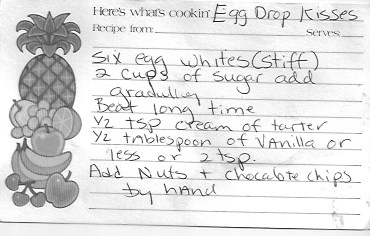 Here's what's cookin' Egg Drop Kisses
Recipe from: Serves:
Six egg whites (stiff)
2 cups of sugar add
gradulley
Beat long time
1/2 tsp cream of tarter
1/2 tablespoon of Vanilla or
less or 2 tsp.
Add Nuts + chocalate chips
by hand